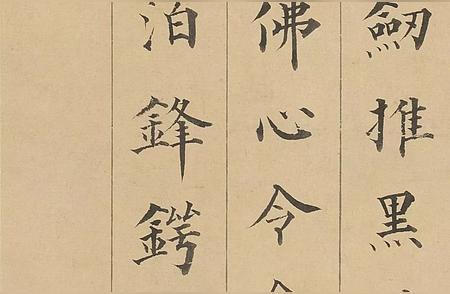 劒推黑
佛心令
泊鋒鍔